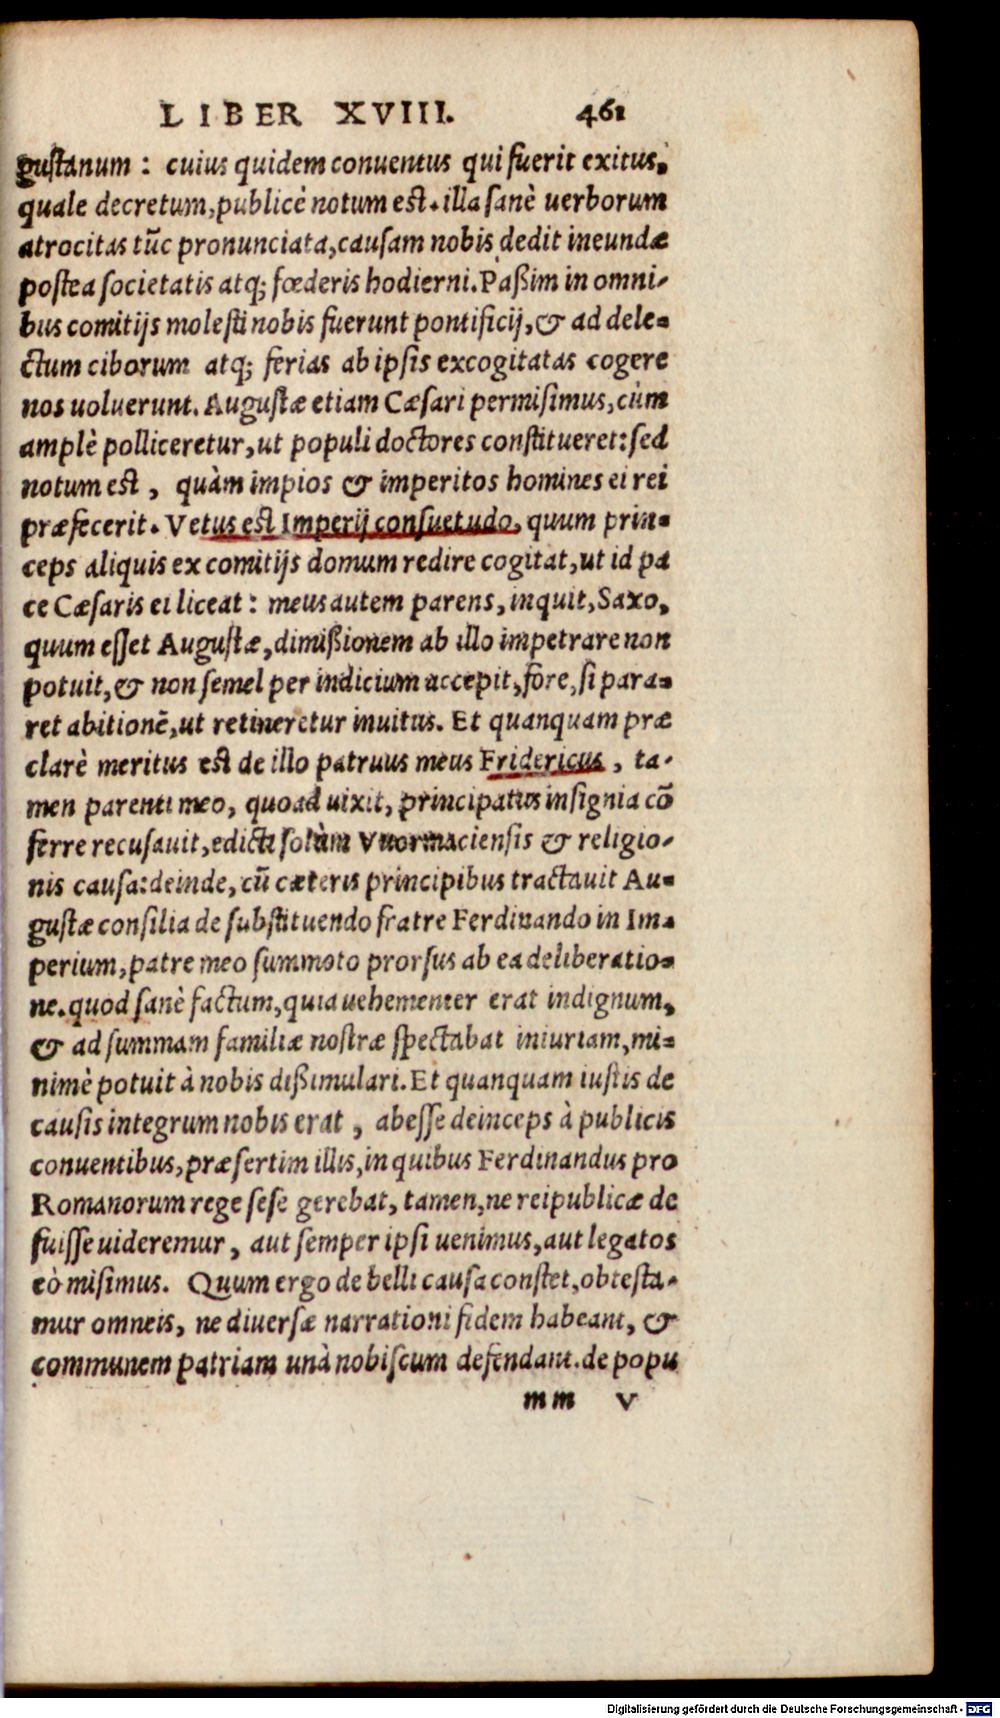 LIBER XVIII. 461
gustanum : cuius quidem conuentus qui fuerit exitus,
quale decretum, publicè notum est. illa sanè uerborum
atrocitas tũc pronunciata, causam nobis dedit ineundæ
postea societatis atq; fœderis hodierni. Paßim in omni-
bus comitijs molesti nobis fuerunt pontificij, & ad dele-
ctum ciborum atq; ferias ab ipsis excogitatas cogere
nos uoluerunt. Augustæ etiam Cæsari permisimus, cùm
amplè polliceretur, ut populi doctores constitueret: sed
notum est, quàm impios & imperitos homines ei rei
præfecerit. Vetus est Imperij consuetudo, quum prin-
ceps aliquis ex comitijs domum redire cogitat, ut id pa
ce Cæsaris ei liceat: meus autem parens, inquit, Saxo,
quum esset Augustæ, dimißionem ab illo impetrare non
potuit, & non semel per indicium accepit, fore, si para-
ret abitionẽ, ut retineretur inuitus. Et quanquam præ
clarè meritus est de illo patruus meus Fridericus, ta-
men parenti meo, quoad uixit, principatus insignia cõ
ferre recusauit, edicti solùm Vuormaciensis & religio-
nis causa: deinde, cũ cæteris principibus tractauit Au-
gustæ consilia de substituendo fratre Ferdinando in Im-
perium, patre meo summoto prorsus ab ea deliberatio-
ne. quod sanè factum, quia uehementer erat indignum,
& ad summam familiæ nostræ spectabat iniuriam, mi-
nimè potuit à nobis dißimulari. Et quanquam iustis de
causis integrum nobis erat, abesse deinceps à publicis
conuentibus, præsertim illis, in quibus Ferdinandus pro
Romanorum rege sese gerebat, tamen, ne reipublicæ de
fuisse uideremur, aut semper ipsi uenimus, aut legatos
eò misimus. Quum ergo de belli causa constet, obtesta-
mur omneis, ne diuersæ narrationi fidem habeant, &
communem patriam unà nobiscum defendant. de popu
mm v
Digitalisierung gefördert durch die Deutsche Forschungsgemeinschaft - DFG